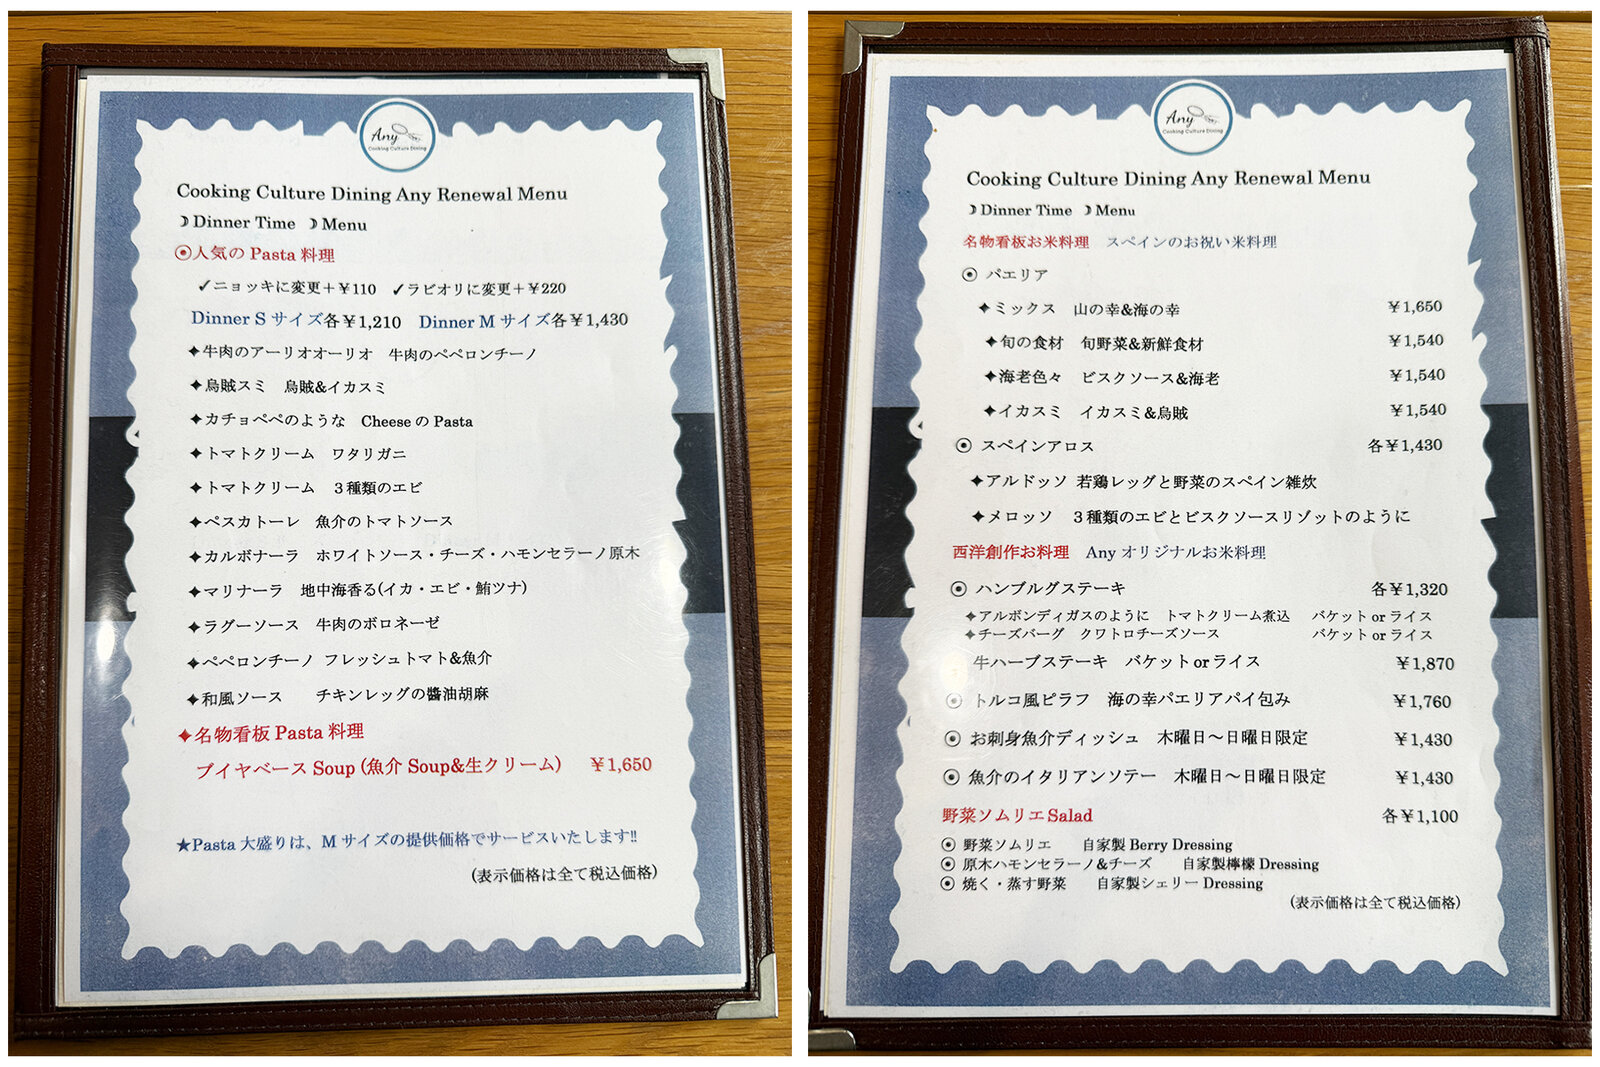 Any
Cooking Culture Dining
Cooking Culture Dining Any Renewal Menu
☽Dinner Time ☽Menu
⦿人気の Pasta 料理
✓ニョッキに変更＋￥110 ✓ラビオリに変更＋￥220
Dinner S サイズ各￥1,210 Dinner M サイズ各￥1,430
✦牛肉のアーリオオーリオ 牛肉のペペロンチーノ
✦烏賊スミ 烏賊&イカスミ
✦カチョペペのような Cheese の Pasta
✦トマトクリーム ワタリガニ
✦トマトクリーム ３種類のエビ
✦ペスカトーレ 魚介のトマトソース
✦カルボナーラ ホワイトソース・チーズ・ハモンセラーノ原木
✦マリナーラ 地中海香る(イカ・エビ・鮪ツナ)
✦ラグーソース 牛肉のボロネーゼ
✦ペペロンチーノ フレッシュトマト&魚介
✦和風ソース チキンレッグの醬油胡麻
✦名物看板 Pasta 料理
ブイヤベース Soup (魚介 Soup&生クリーム) ￥1,650
★Pasta 大盛りは、M サイズの提供価格でサービスいたします‼
(表示価格は全て税込価格)
Any
Cooking Culture Dining
Cooking Culture Dining Any Renewal Menu
☽Dinner Time ☽Menu
名物看板お米料理 スペインのお祝い米料理
⦿ パエリア
✦ミックス 山の幸&海の幸 ￥1,650
✦旬の食材 旬野菜&新鮮食材 ￥1,540
✦海老色々 ビスクソース&海老 ￥1,540
✦イカスミ イカスミ&烏賊 ￥1,540
⦿ スペインアロス 各￥1,430
✦アルドッソ 若鶏レッグと野菜のスペイン雑炊
✦メロッソ ３種類のエビとビスクソースリゾットのように
西洋創作お料理 Any オリジナルお米料理
⦿ ハンブルグステーキ 各￥1,320
✦アルボンディガスのように トマトクリーム煮込 バケット or ライス
✦チーズバーグ クワトロチーズソース バケット or ライス
牛ハーブステーキ バケット or ライス ￥1,870
⦿ トルコ風ピラフ 海の幸パエリアパイ包み ￥1,760
⦿ お刺身魚介ディッシュ 木曜日～日曜日限定 ￥1,430
⦿ 魚介のイタリアンソテー 木曜日～日曜日限定 ￥1,430
野菜ソムリエ Salad 各￥1,100
⦿ 野菜ソムリエ 自家製 Berry Dressing
⦿ 原木ハモンセラーノ&チーズ 自家製檸檬 Dressing
⦿ 焼く・蒸す野菜 自家製シェリー Dressing
(表示価格は全て税込価格)